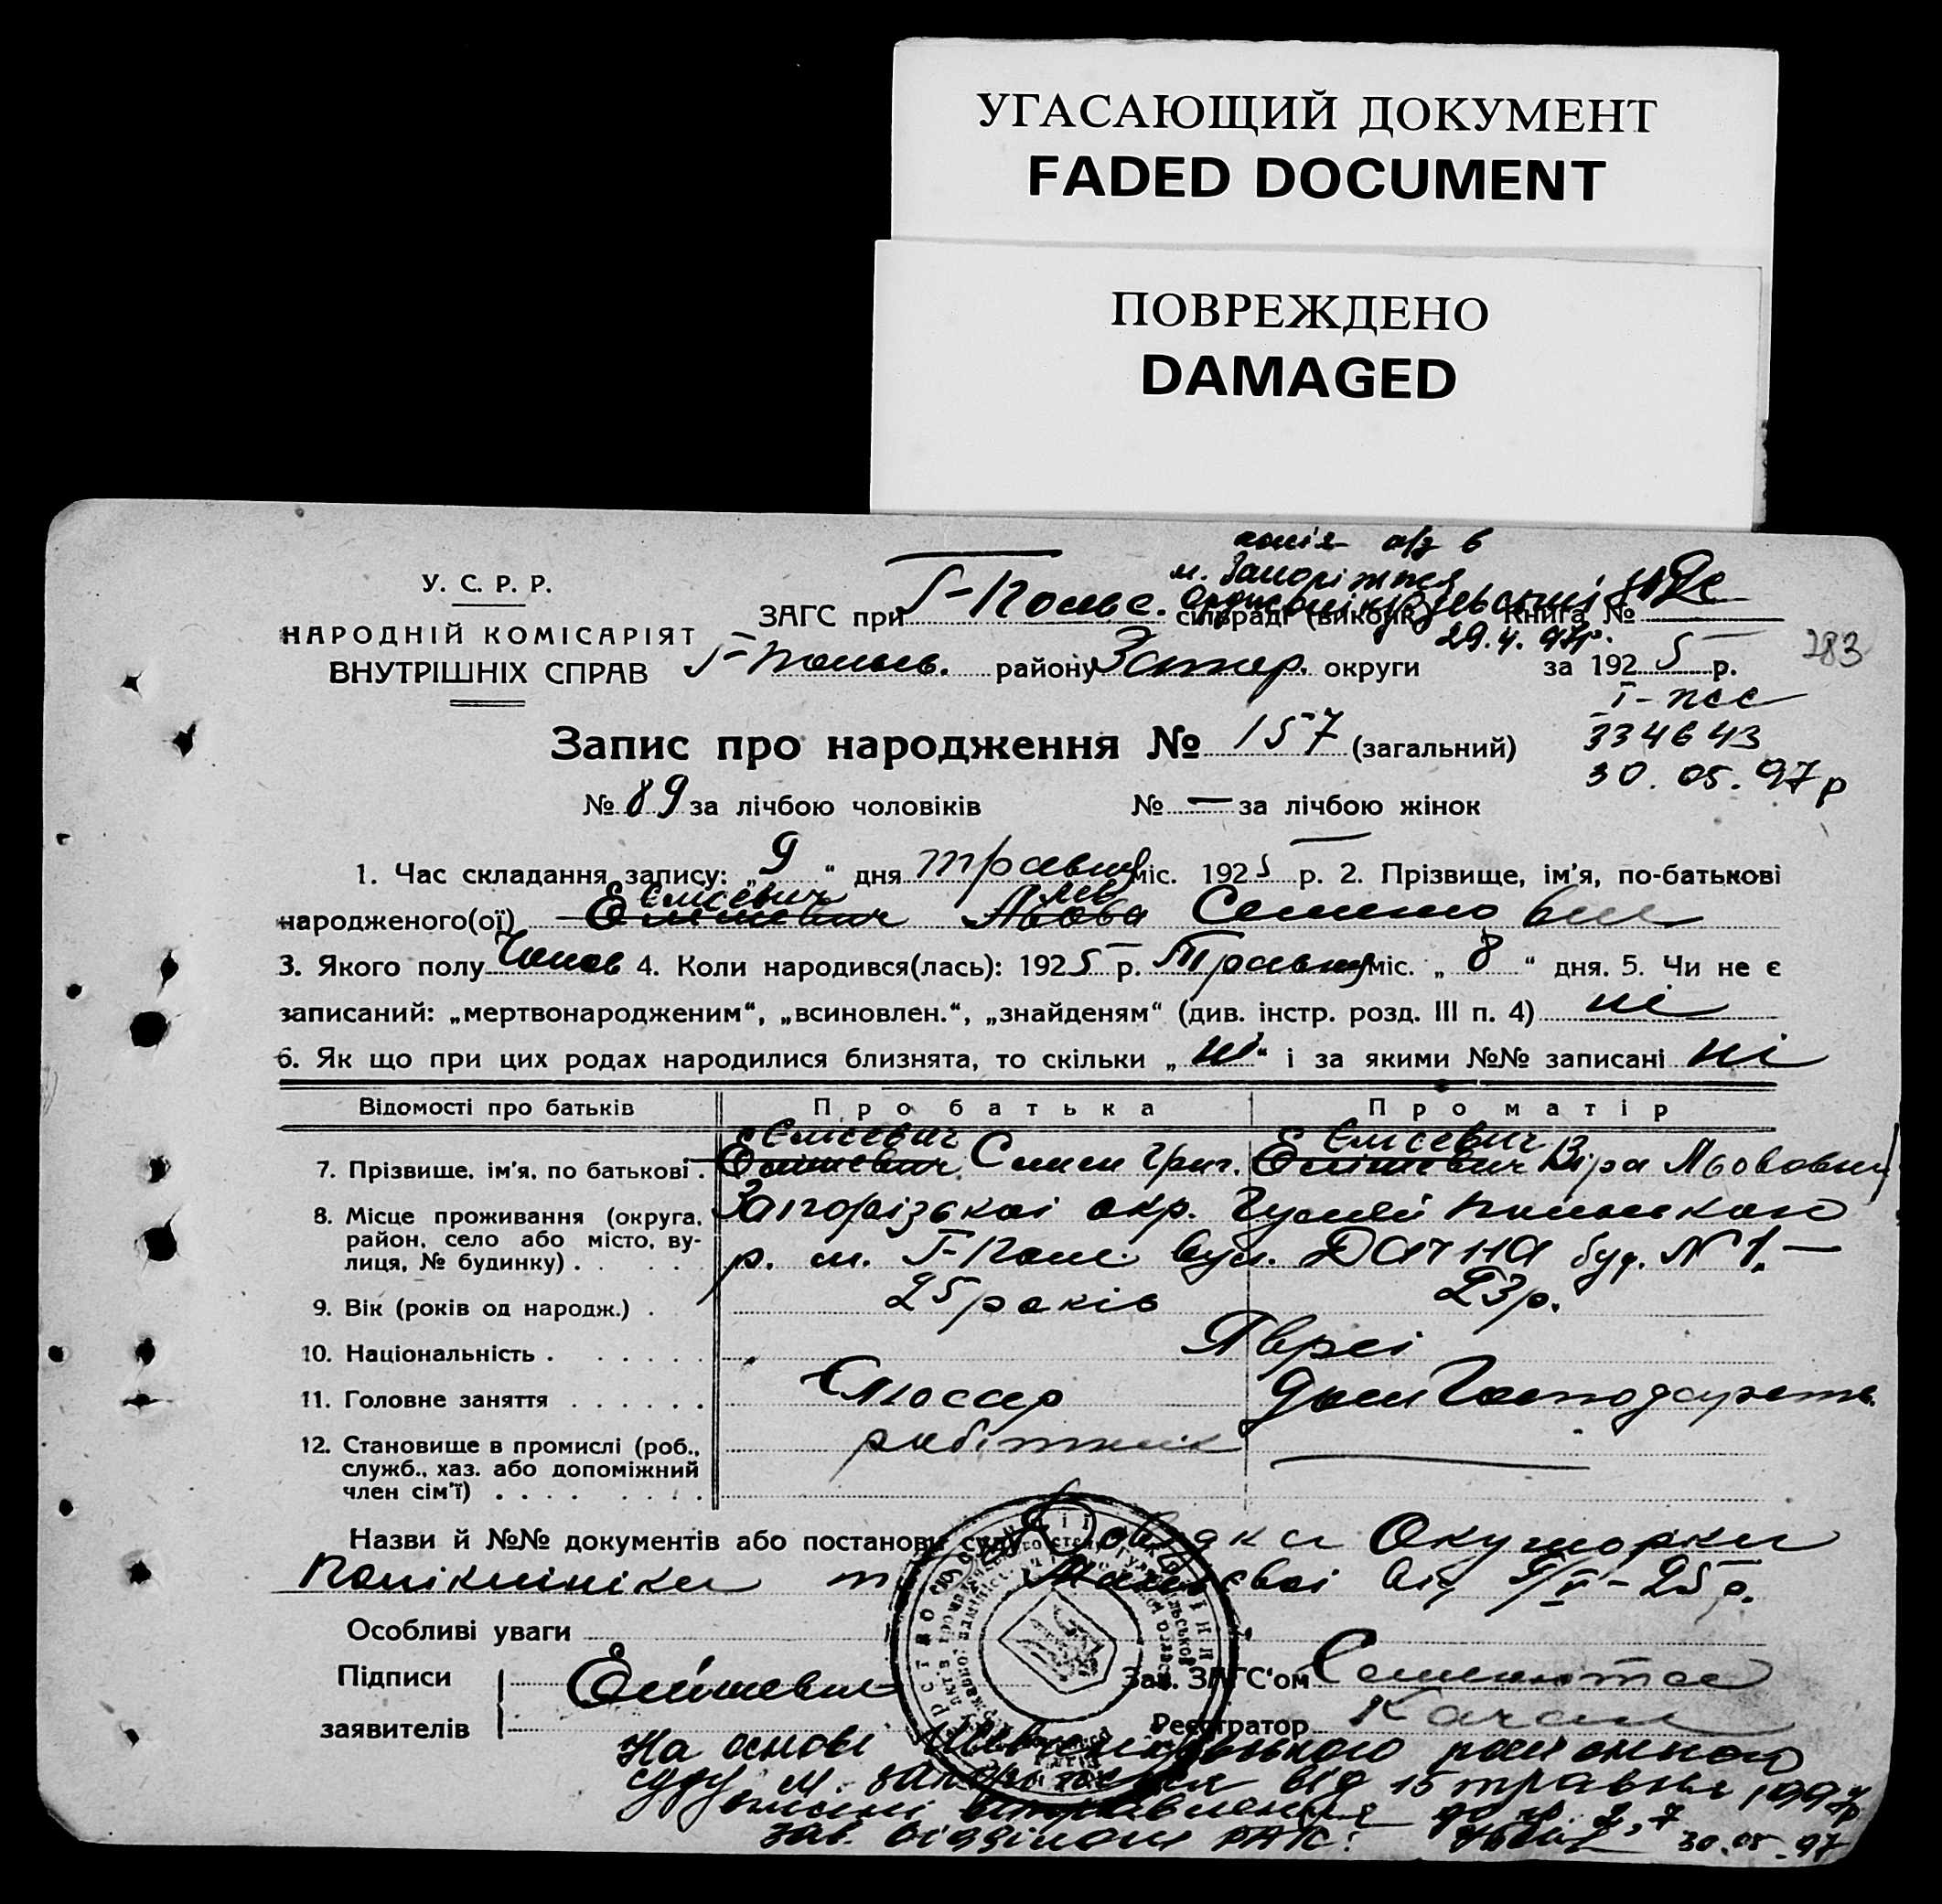 УГАСАЮЩИЙ ДОКУМЕНТ
FADED DOCUMENT
ПОВРЕЖДЕНО
DAMAGED
копія а/з в
м. Запоріжжя
29.4. 97р.
У. С. Р. Р.
НАРОДНІЙ КОМІСАРІЯТ
ВНУТРІШНІХ СПРАВ
ЗАГС при Г-Польс. сільраді (виконк.) Книга №
Г-Польс. району Запор. округи за 1925 р.
283
I-ЖС
334643
30.05.97р
Запис про народження № 157 (загальний)
№ 89 за лічбою чоловіків № — за лічбою жінок
1. Час складання запису: „9“ дня травня міс. 1925 р. 2. Прізвище, ім'я, по-батькові
Єлісєвич Лев
народженого(ої) Елішевич Льова Семенович
3. Якого полу Чолов 4. Коли народився(лась): 1925 р. Травня міс. „8“ дня. 5. Чи не є
записаний: „мертвонародженим“, „всиновлен.“, „знайденям“ (див. інстр. розд. III п. 4) ні
6. Як що при цих родах народилися близнята, то скільки „ні“ і за якими №№ записані ні
Відомості про батьків Про батька Про матір
Єлисєвич Єлисєвич
7. Прізвище, ім'я, по батькові . Елішевич Семен Григ. Елішевич Віра Львовна
8. Місце проживання (округа, район, село або місто, вулиця, № будинку) . Запорізькоі окр. Гуляй Польського
р. м. Г-Поле вул. Дачна буд. № 1. —
9. Вік (років од народж.) . 25 років 23 р.
10. Національність . Явреі
11. Головне заняття Слюсар Дом Господарств.
12. Становище в промислі (роб., служб., хаз. або допоміжний член сім'ї) . робітник —
Назви й №№ документів або постанови суду Довідка Окушорки
Поліклініки від 9/V-25 р.
Особливі уваги
Підписи заявителів Елішевич
Зав. ЗАГС'ом
Реєстратор Качан
На основі районного
суду м. Запоріжжя від 15 травня 1997р
внесені виправлення до гр. 2, 7
зав. відділом РАГС: 30.05.97